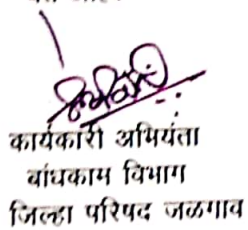 कार्यकारी अभियंता
बांधकाम विभाग
जिल्हा परिषद जळगाव